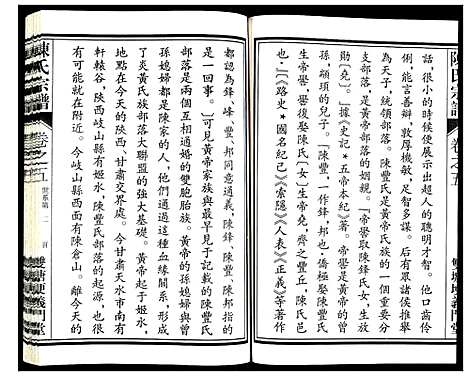 陳氏宗譜
卷之五
話，很小的時候便展示出超人的聰明才智。他口齒伶
俐，能言善辯，敦厚機敏，足智多謀。后有眾諸侯推舉
爲天子，統領部落。陳豐氏是黃帝氏族的一個重要分
支部落，是黃帝部落的姻親。「帝嚳取陳鋒氏女，生帝堯
則〔堯〕。」據《史記★五帝本紀》載：「帝嚳是黃帝的曾
孫，顓頊的兒子。」〔陳豐，一作鋒，邦也〕僑極娶陳豐氏
生帝嚳，帝嚳復娶陳氏〔女〕生帝堯，陳氏邑
都認為鋒、峰、豐、邦同意通義，陳鋒、陳豐、陳邦指的
是一回事。〕可見黃帝家族部落與陳家的陳豐氏
部落是兩個互相通婚的雙胞胎族。黃帝的孫媳婦與曾
孫媳婦都是陳家的人，他們通過這種血緣關係，形成
了炎黃氏族部落大聯盟的強大基礎。黃帝起于姬水，
地點在今天的陝西、甘肅交界處。今甘肅天水市南有
軒轅谷，陝西岐山縣有姬水，陳豐氏部落的起源，也很
有可能就在附近。今岐山縣西面有陳倉山。離今天的
陳氏宗譜
卷之五
世系第二